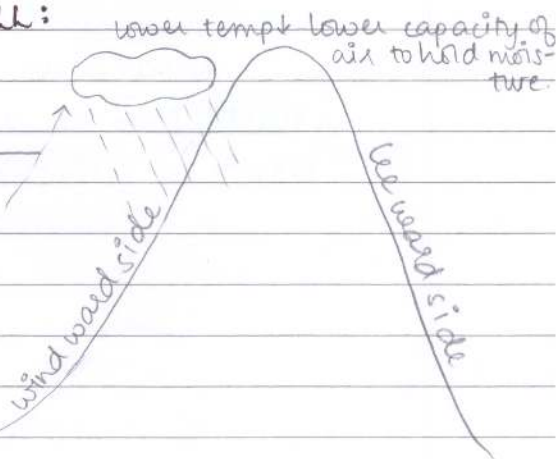 lower temp & lower capacity of
air to hold mois-
ture.
windward side
leeward side